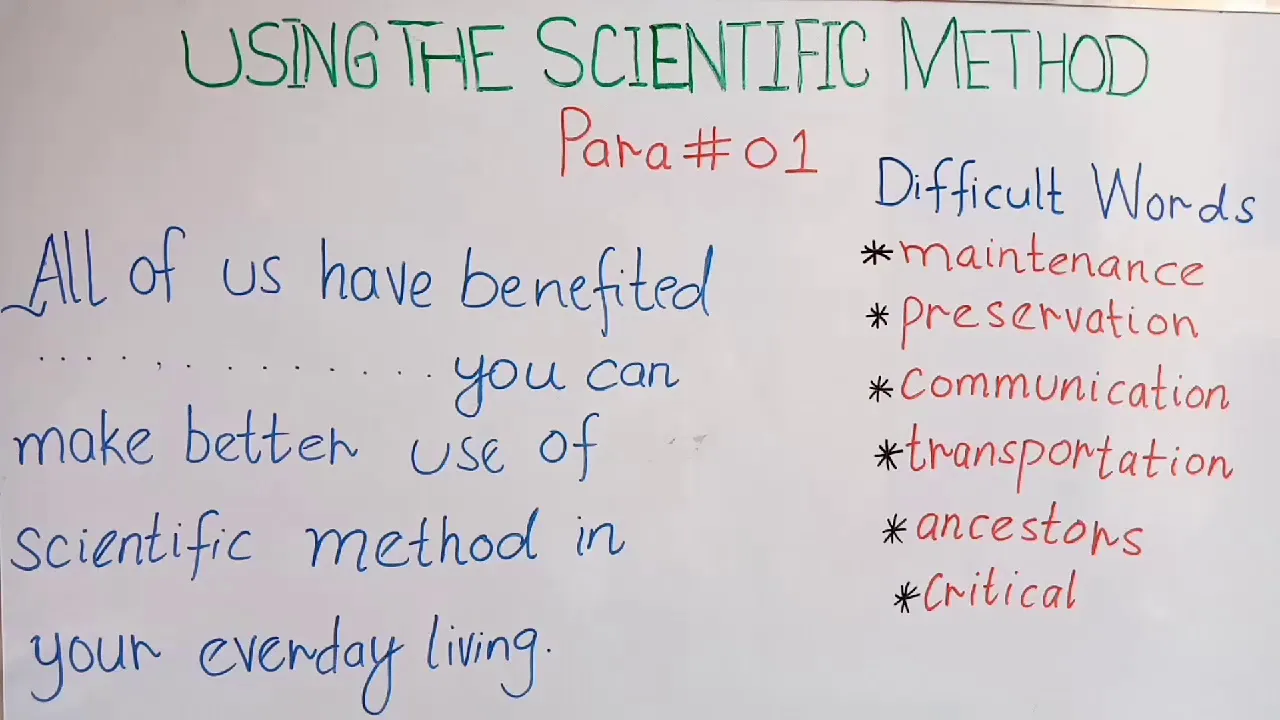 USING THE SCIENTIFIC METHOD
Para # 01
All of us have benefited
. . . . , . . . . . . . . . you can
make better use of
scientific method in
your everday living.
Difficult Words
*maintenance
*preservation
*communication
*transportation
*ancestors
*Critical